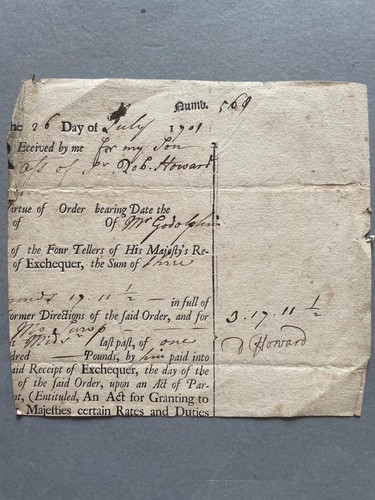 Numb. 569
he 26 Day of July 1701
Eceived by me for my Son
Ass of Sr Rob. Howard
irtue of Order bearing Date the
of Of Mr Godolphin
of the Four Tellers of His Majesty's Re-
of Exchequer, the Sum of three
ounds 17. 11 ½ — in full of
ormer Directions of the said Order, and for
3. 17. 11 ½
Mids last past, of one
D Howard
dred — Pounds, by him paid into
aid Receipt of Exchequer, the day of the
of the said Order, upon an Act of Par-
ent, (Entituled, An Act for Granting to
Majesties certain Rates and Duties